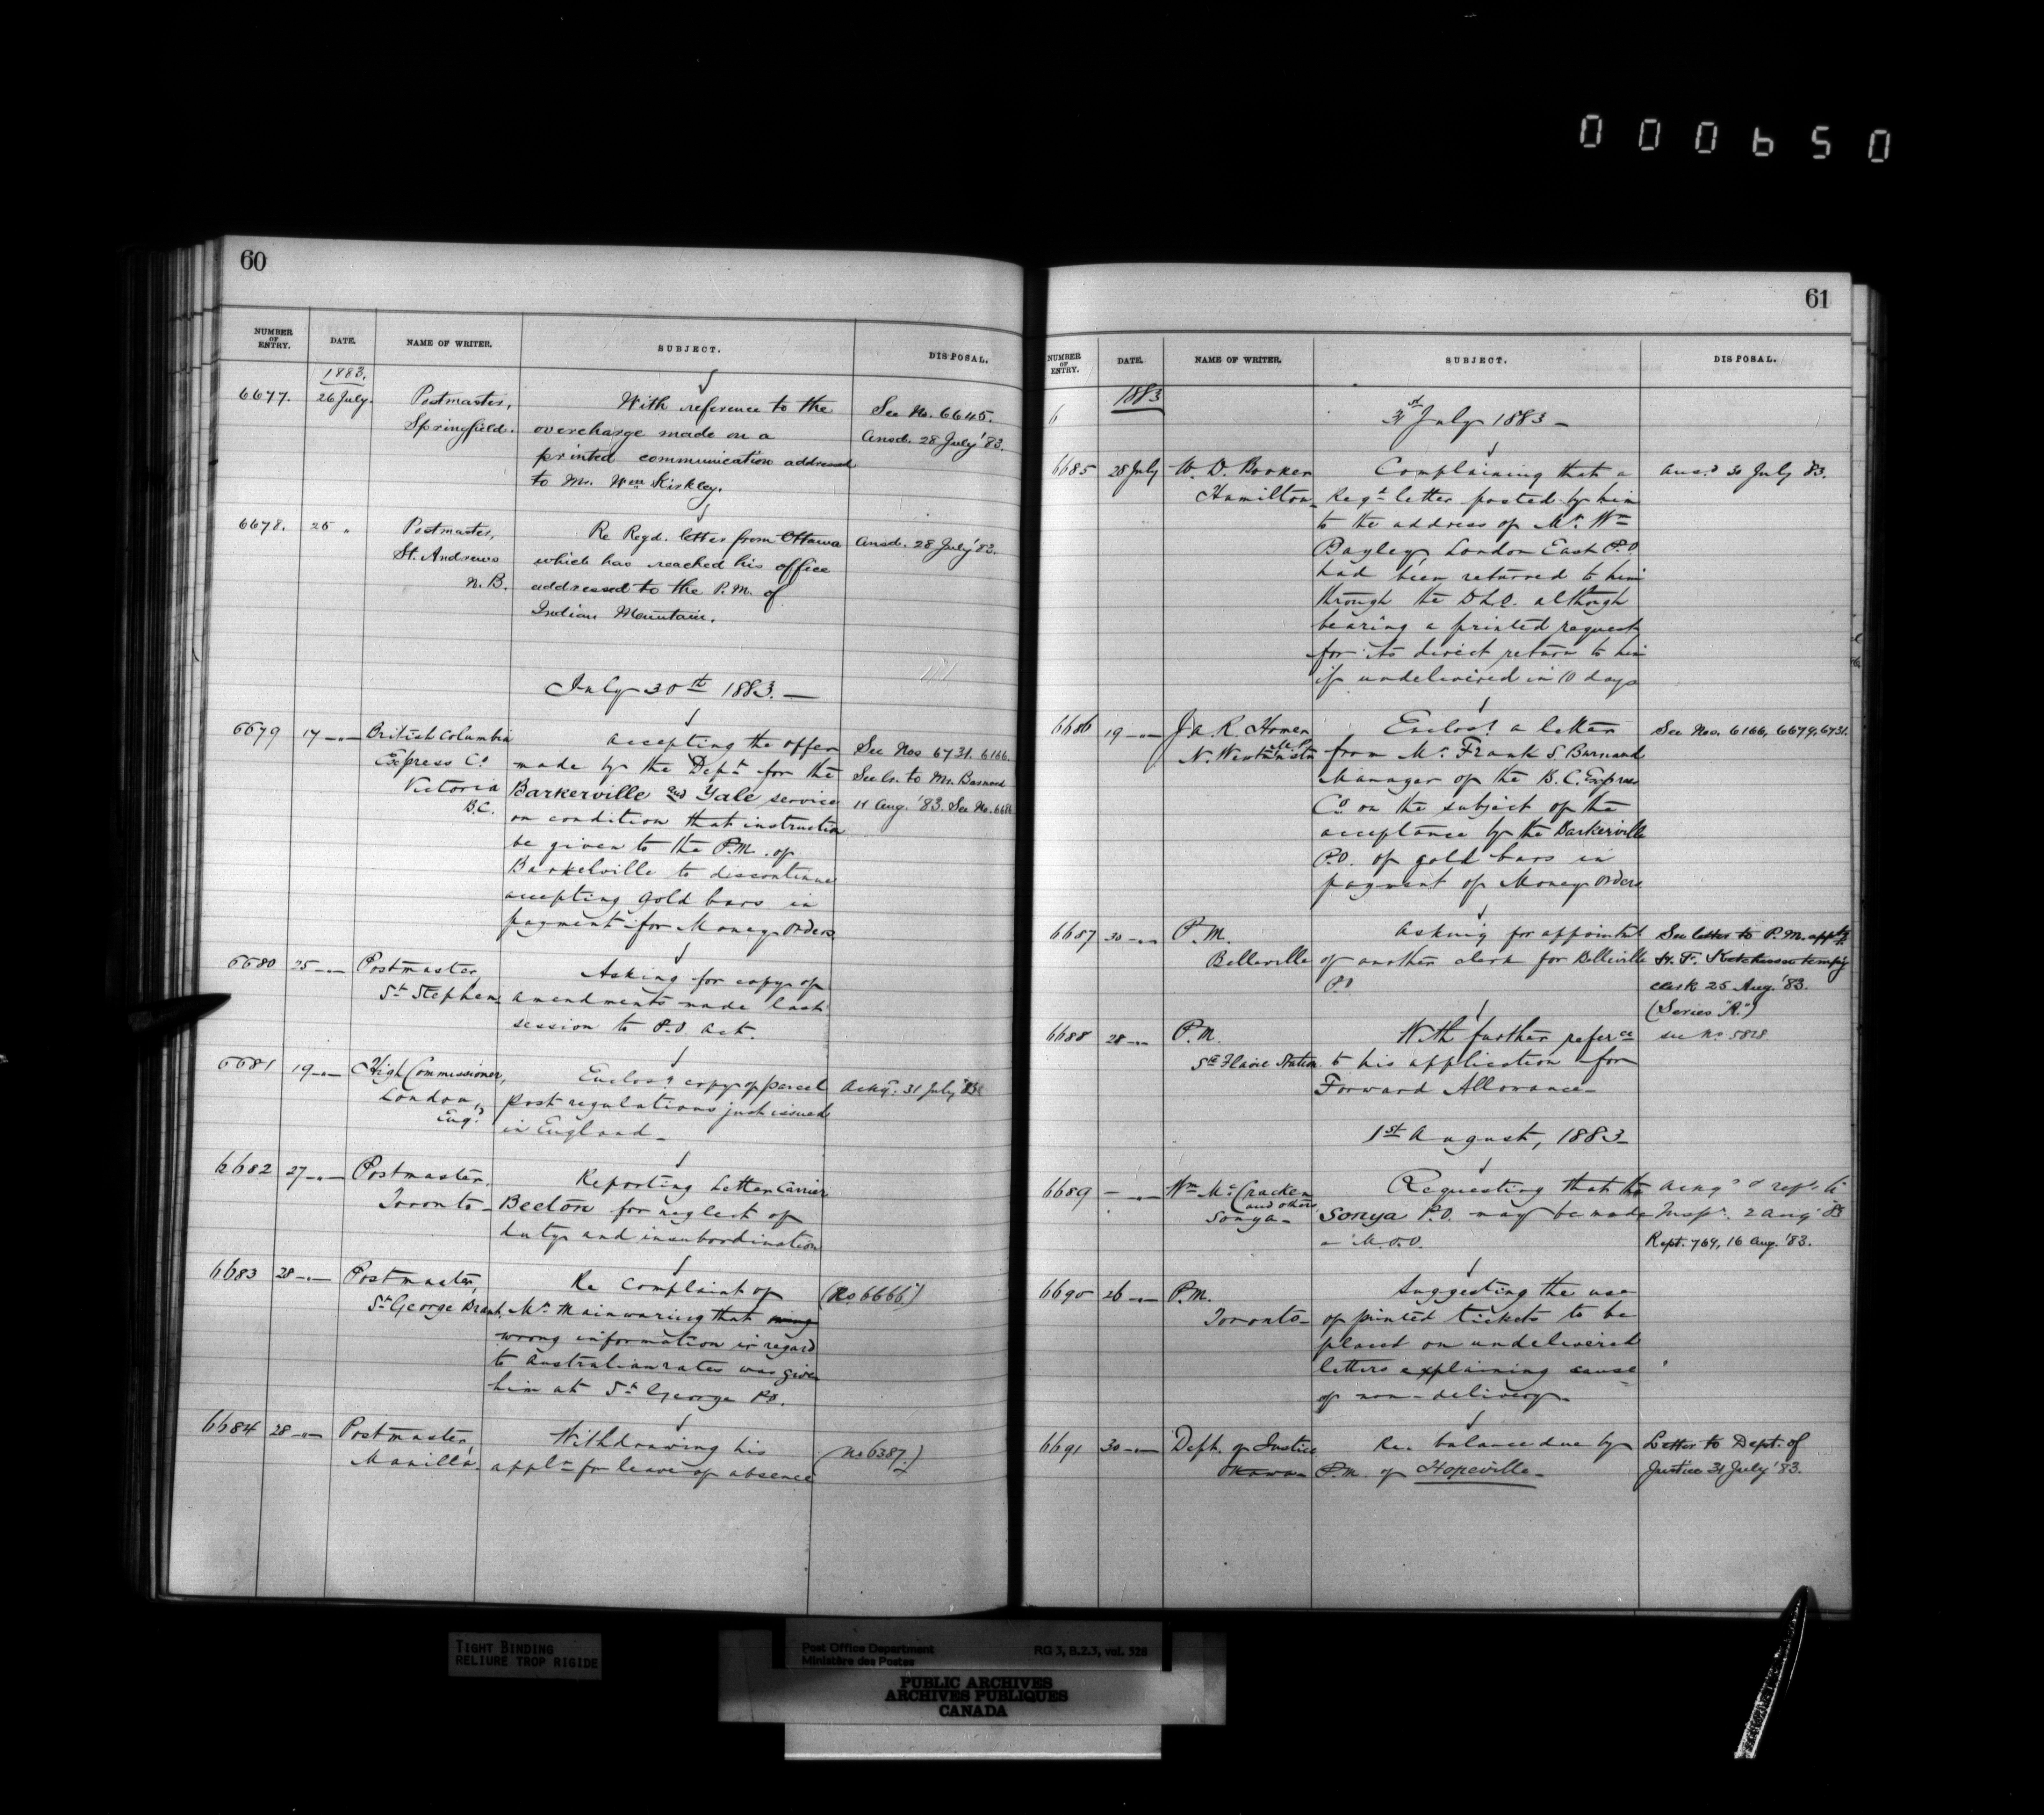 000650
60
NUMBER OF ENTRY. DATE. NAME OF WRITER. SUBJECT. DISPOSAL.
1883.
6677. 26 July. Postmaster, With reference to the See No. 6645.
Springfield. overcharge made on a Ansd. 28 July '83.
printed communication addressed
to Mr. Wm Kirkley.
6678. 25 " Postmaster, Re Regd. letter from Ottawa Ansd. 28 July '83.
St. Andrews which has reached his office
N.B. addressed to the P.M. of
Indian Mountain.
July 30th 1883. —
6679 17 —"— British Columbia Accepting the offer See Nos 6731. 6166.
Express Co made by the Dept for the See lr. to Mr. Barnard
Victoria Barkerville and Yale service 11 Aug. '83. See No. 6686
B.C. on condition that instruction
be given to the P.M. of
Barkelville to discontinue
accepting gold bars in
payment for Money Orders
6680 25 —"— Postmaster, Asking for copy of
St Stephen amendments made last
session to P.O. Act.
6681 19 —"— High Commissioner, Enclosg copy of parcel Ackgd. 31 July '83
London, post regulations just issued
Engd in England —
6682 27 —"— Postmaster, Reporting Letter Carrier
Toronto — Beeton for neglect of
duty and insubordination
6683 28 —"— Postmaster, Re Complaint of (No 6666)
St George Brant, Mr Mainwaring that
wrong information in regard
to Australian rates was given
him at St George P.O.
6684 28 —"— Postmaster, Withdrawing his (No 6387.)
Manilla. appln for leave of absence
61
NUMBER OF ENTRY. DATE. NAME OF WRITER. SUBJECT. DISPOSAL.
1883
6 31st July 1883 —
6685 28 July W. D. Booker Complaining that a Ansd 30 July '83.
Hamilton — Regd letter posted by him
to the address of Mr Wm
Bayley London East P.O.
had been returned to him
through the D.L.O. although
bearing a printed request
for its direct return to him
if undelivered in 10 days
6686 19 —"— J. A. R. Homer Enclosg a letter See Nos. 6166, 6679, 6731.
M.P.
N. Westminster from Mr Frank S. Barnard
Manager of the B.C. Express
Co on the subject of the
acceptance by the Barkerville
P.O. of gold bars in
payment of Money Orders
6687 30 —"— P.M. Asking for appointmt See letter to P.M. apptg
Belleville of another clerk for Belleville H. F. Ketcheson tempy
P.O. clerk 25 Aug. '83.
(Series "R.")
6688 28 —"— P.M. With further referce see No 5828
Ste Flavie Station. to his application for
Forward Allowance —
1st August, 1883 —
6689 — —"— Wm McCracken Requesting that the Ackgd & refd to
and others,
Sonya — Sonya P.O. may be made Inspr. 2 Aug '83
a M.O.O. Rept. 769, 16 Aug. '83.
6690 26 —"— P.M. Suggesting the use
Toronto — of printed tickets to be
placed on undelivered
letters explaining cause
of non-delivery —
6691 30 —"— Dept. of Justice Re. balance due by Letter to Dept. of
Ottawa — P.M. of Hopeville — Justice 31 July '83.
TIGHT BINDING
RELIURE TROP RIGIDE
Post Office Department RG 3, B.2.3, vol. 528
Ministère des Postes
PUBLIC ARCHIVES
ARCHIVES PUBLIQUES
CANADA